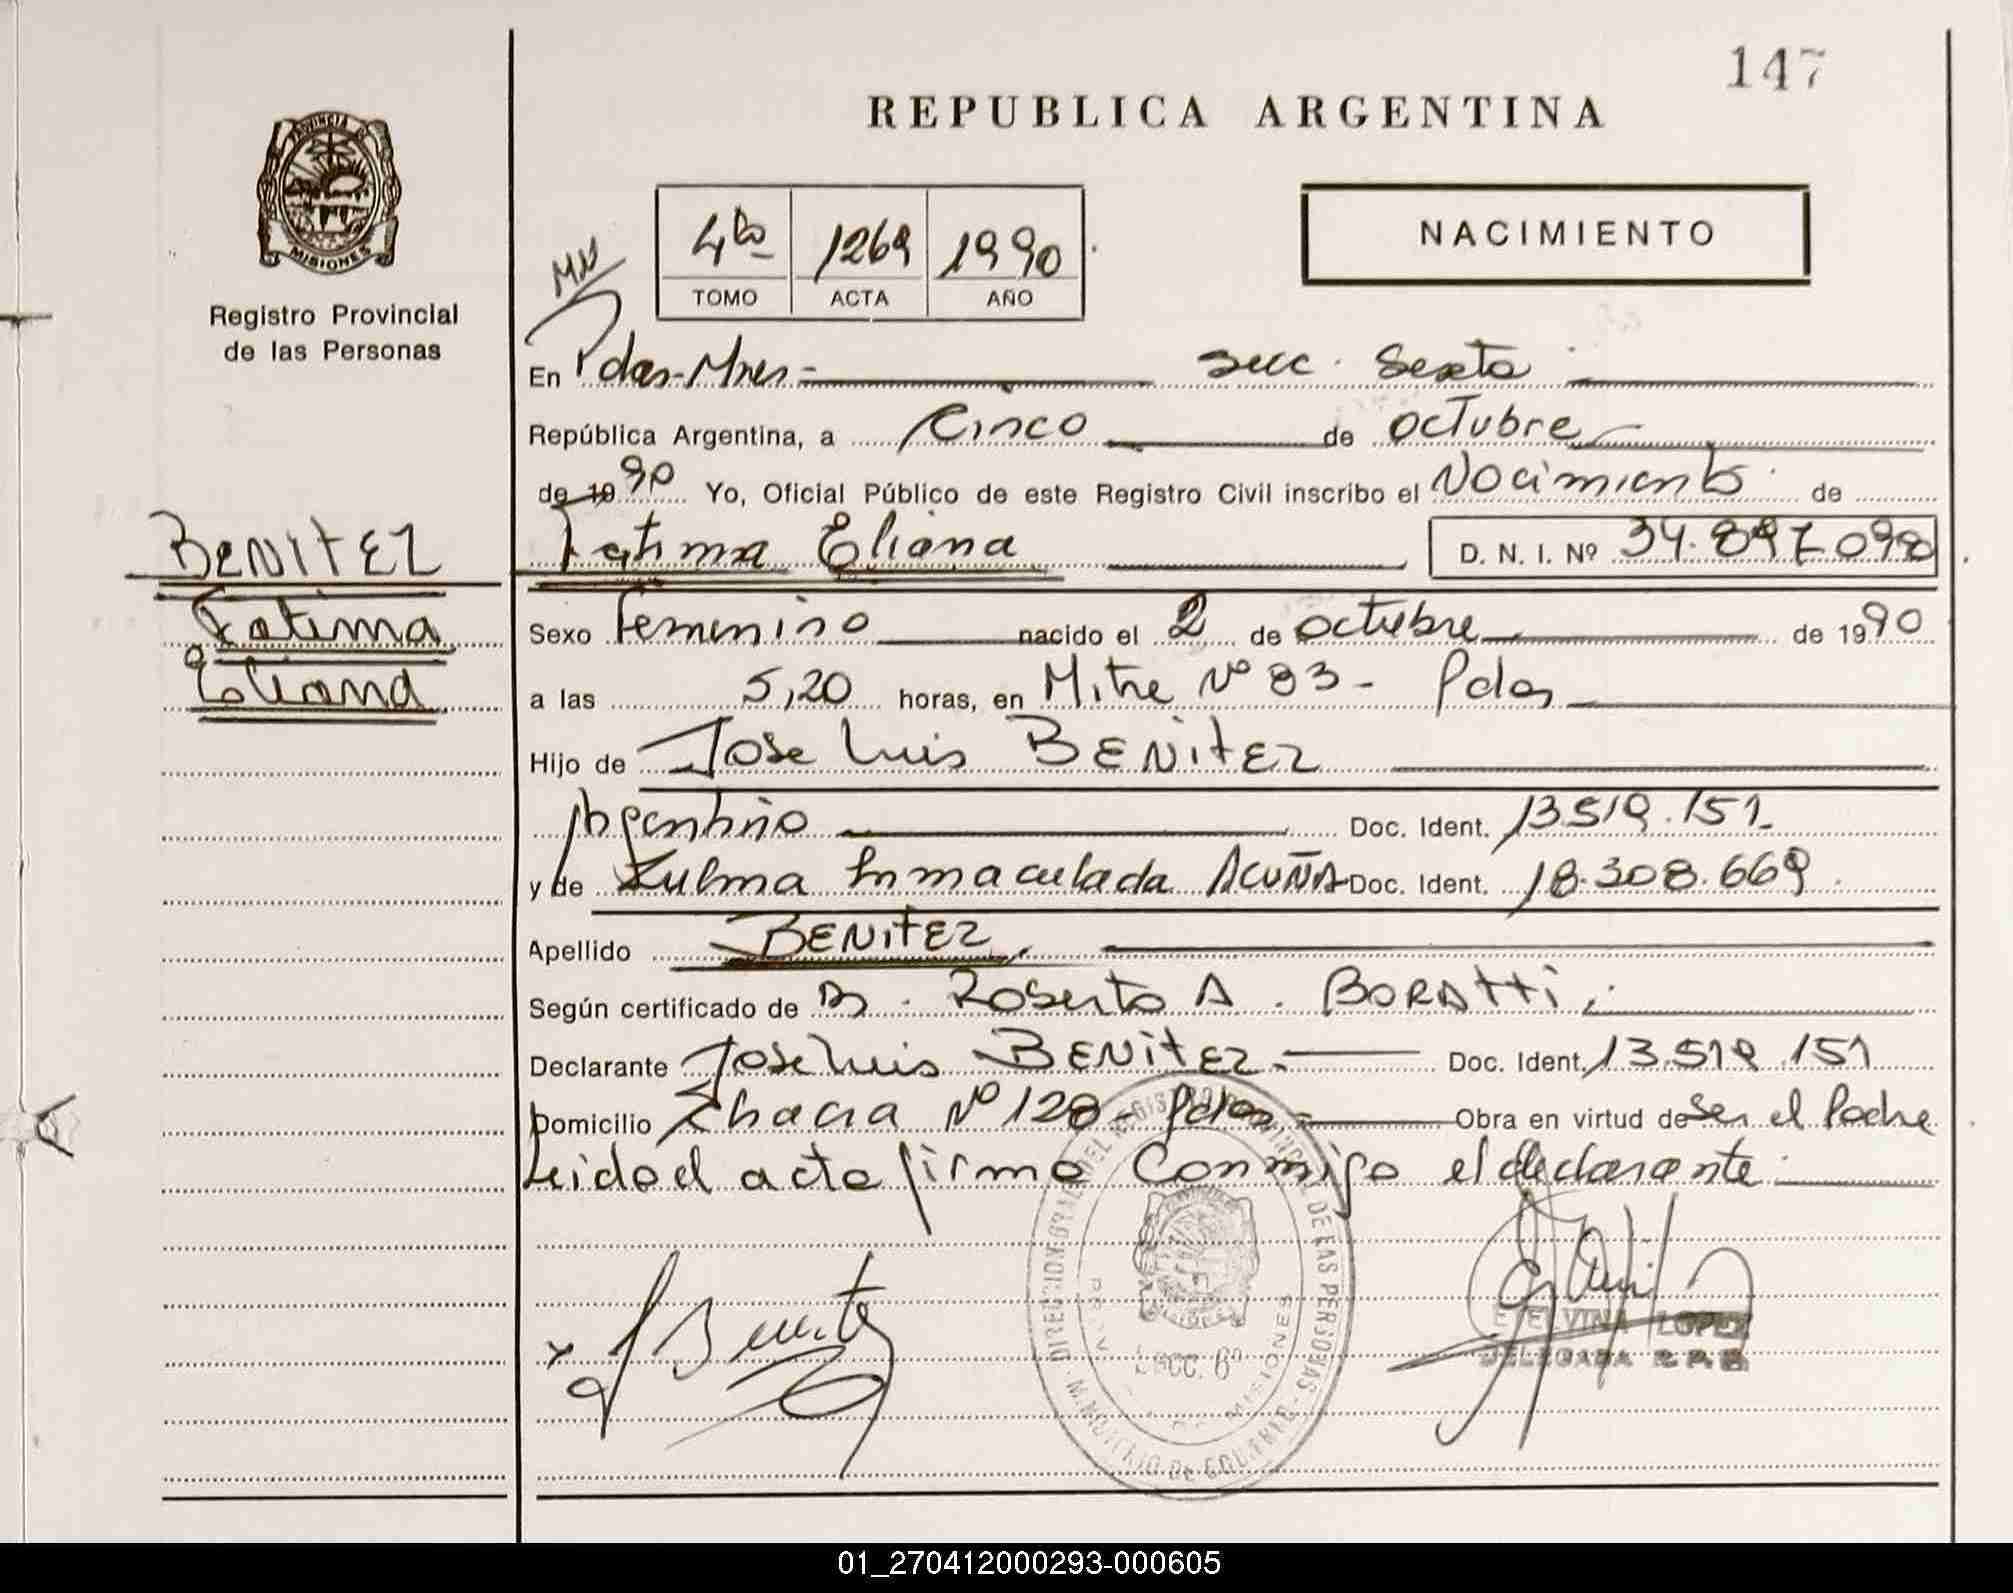 147
REPUBLICA ARGENTINA
PROVINCIA DE
MISIONES
Registro Provincial
de las Personas
4to 1269 1990
TOMO ACTA AÑO
NACIMIENTO
En Pdas-Mnes- secc. Sexta
República Argentina, a Cinco de octubre
de 1990 Yo, Oficial Público de este Registro Civil inscribo el Nacimiento de
BENITEZ
Fatima Eliana D. N. I. Nº 34.897.098
Fatima
Eliana
Sexo Femenino nacido el 2 de octubre de 1990
a las 5,20 horas, en Mitre Nº 83 - Pdas
Hijo de Jose Luis BENITEZ
Argentino Doc. Ident. 13.519.151
y de Zulma Inmaculada ACUÑA Doc. Ident. 18.308.669
Apellido BENITEZ
Según certificado de Dr. Roberto A. BORATTI
Declarante Jose Luis BENITEZ Doc. Ident. 13.519.151
Domicilio Chacra Nº 128 - Pdas Obra en virtud de Ser el Padre
Leida el acta firma Conmigo el declarante
J Benitez
DIRECCION GRAL. DEL REGISTRO PROVINCIAL DE LAS PERSONAS - MINISTERIO DE GOBIERNO
SECC. 6º
MISIONES
ETELVINA LOPEZ
DELEGADA R.P.P.
01_270412000293-000605